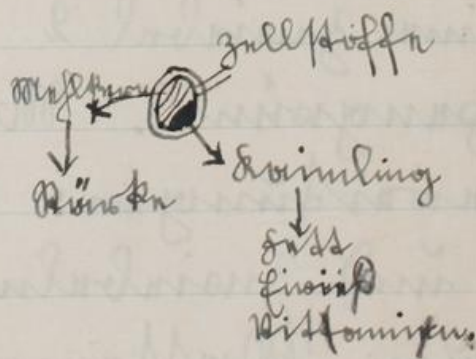 Zellstoffe
Mehlkern
Stärke
Kaimling
Fett
Eiweiß
Vittamine.